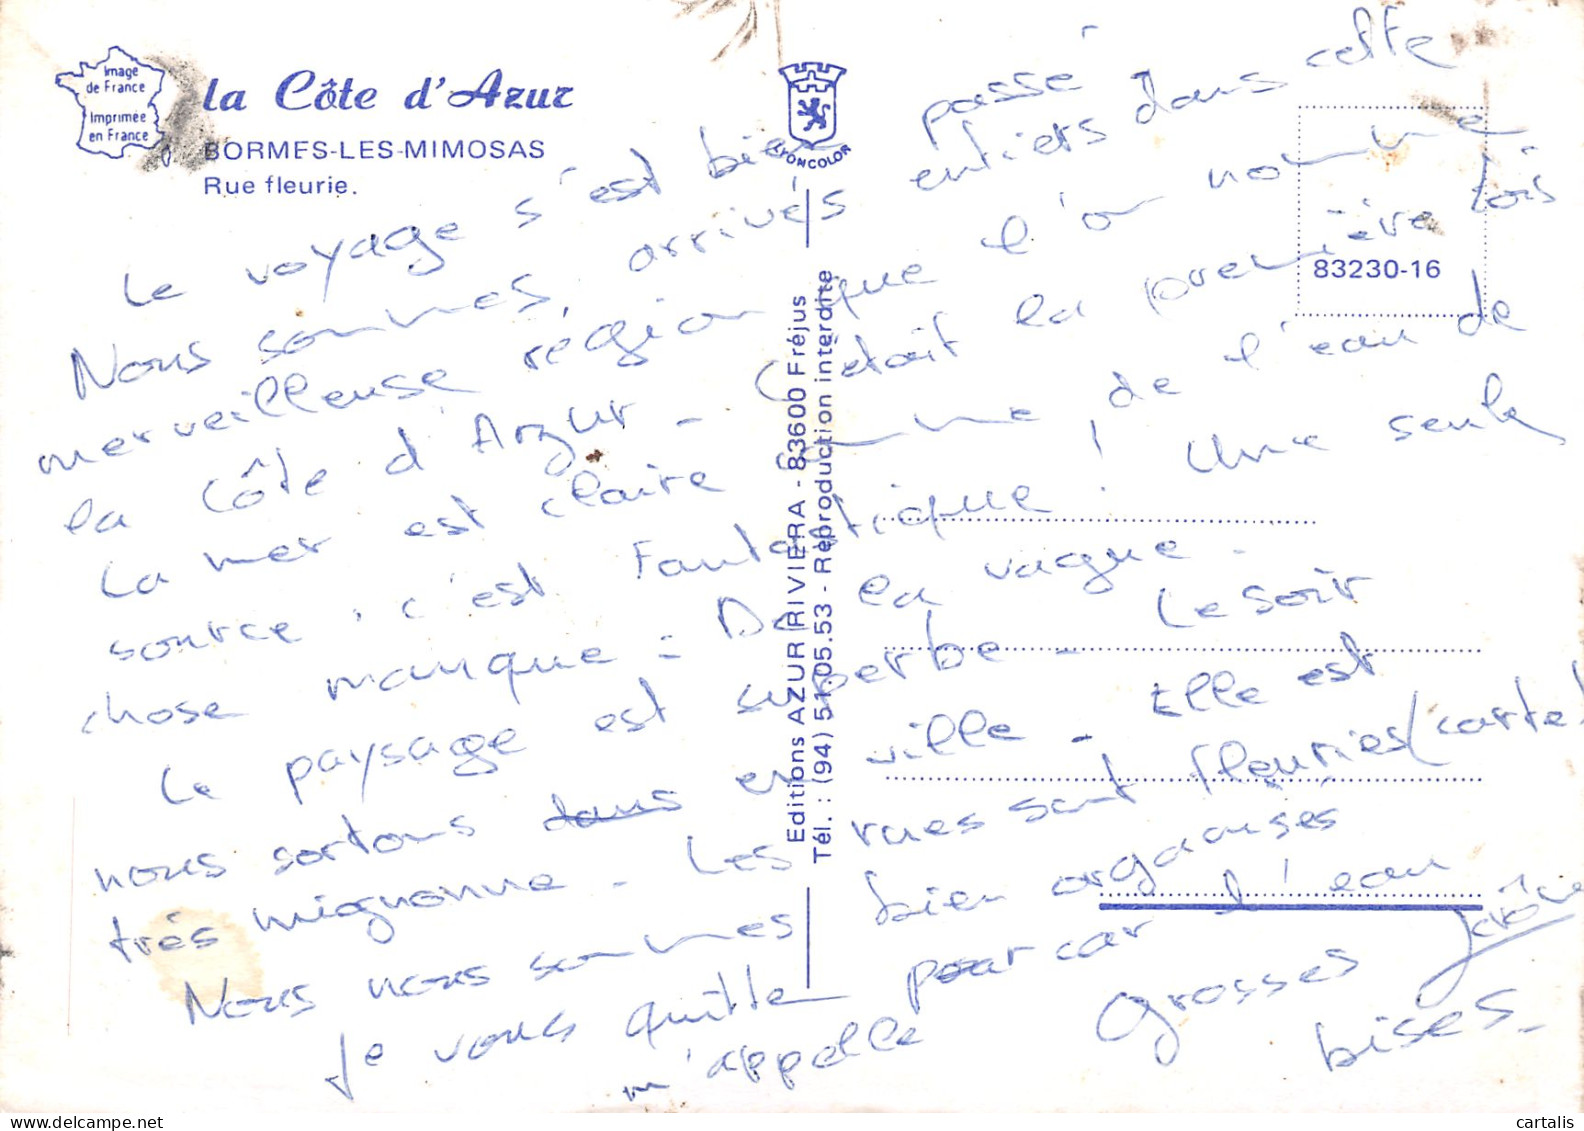 Image
de France
Imprimée
en France
la Côte d'Azur
BORMES-LES-MIMOSAS
Rue fleurie.
LYONCOLOR
83230-16
Editions AZUR RIVIERA - 83600 Fréjus
Tél. : (94) 51.05.53 - Reproduction interdite
Le voyage s'est bien passé
Nous sommes arrivés entiers dans cette
merveilleuse région que l'on nomme
la Côte d'Azur - C'était la première fois
La mer est claire comme de l'eau de
source. c'est Fantastique ! Une seule
chose manque : De la vague -
Le paysage est superbe - Le soir
nous sortons dans en ville - Elle est
très mignonne - Les rues sont fleuries (carte)
Nous nous sommes bien organisés
Je vous quitte car l'eau
m'appelle Grosses bises -
Jérôme
cartalis